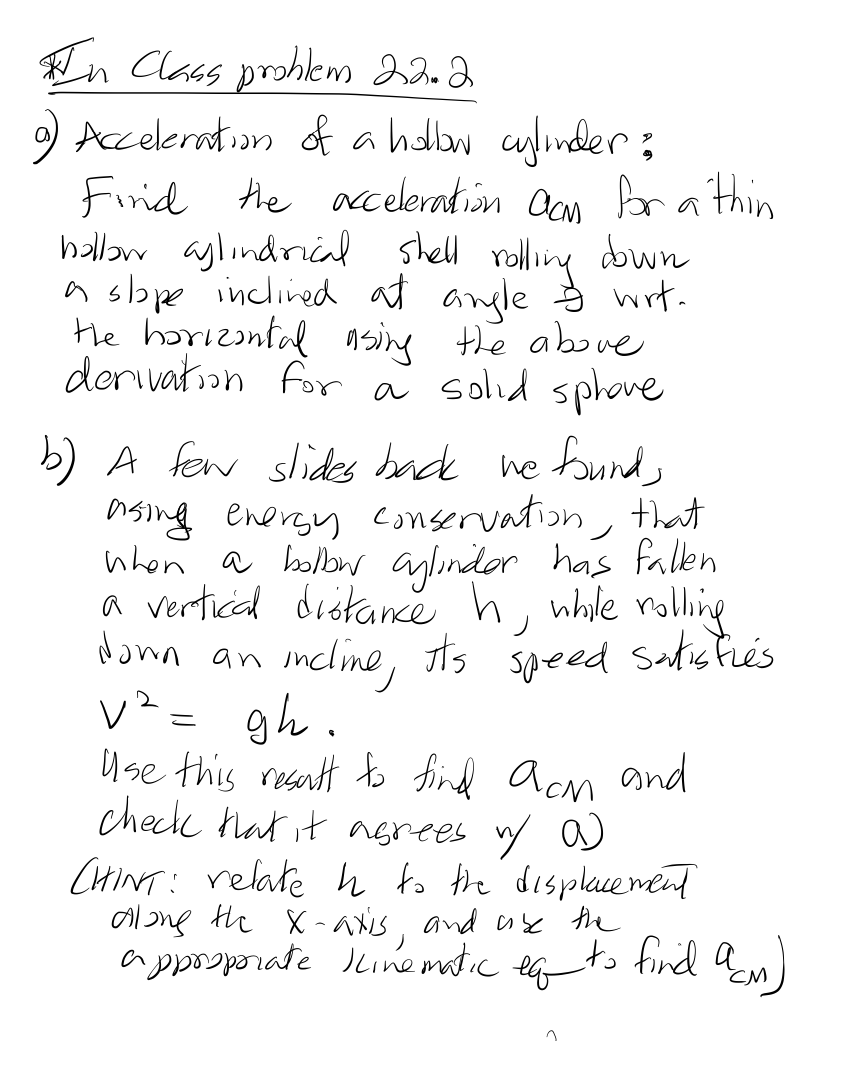 * In Class problem 22.2
a) Acceleration of a hollow cylinder:
Find the acceleration aCM for a thin
hollow cylindrical shell rolling down
a slope inclined at angle θ wrt.
the horizontal using the above
derivation for a solid sphere
b) A few slides back we found,
using energy conservation, that
when a hollow cylinder has fallen
a vertical distance h, while rolling
down an incline, its speed satisfies
V² = gh.
Use this result to find aCM and
check that it agrees w/ a)
(HINT: relate h to the displacement
along the x-axis, and use the
appropriate kinematic eq to find aCM)